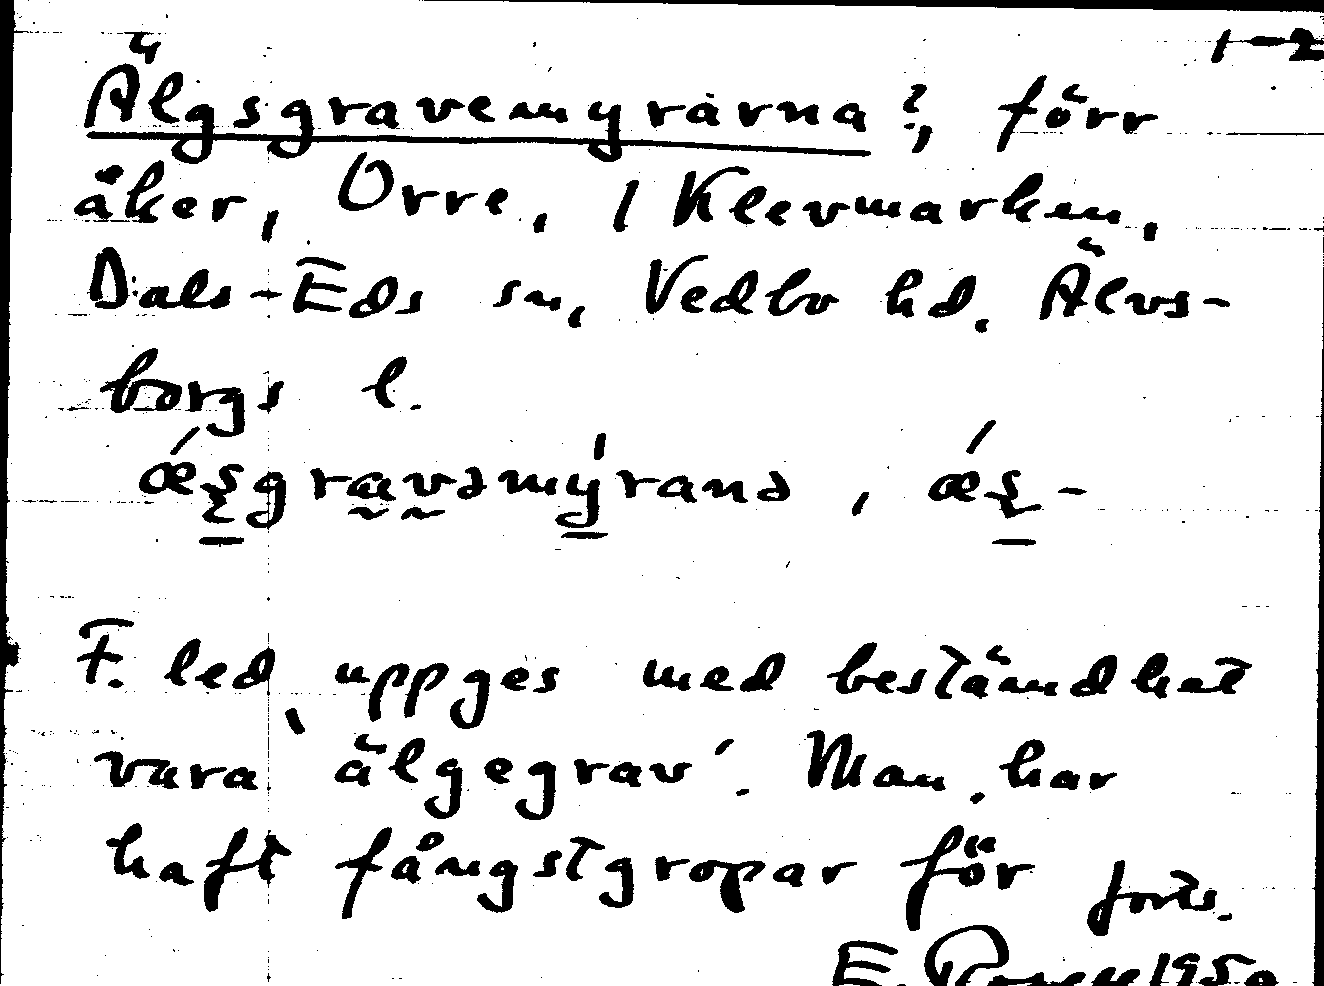 1-2
Älgsgravemyrarna?, förr
åker, Orre, 1 Klevmarken,
Dals-Eds sn, Vedbo hd. Älvs-
borgs l.
ǽsgravəmýranə, ǽs-
F. led uppges med bestämdhet
vara 'älgegrav'. Man har
haft fångstgropar för forts.
E. Rosell 1950